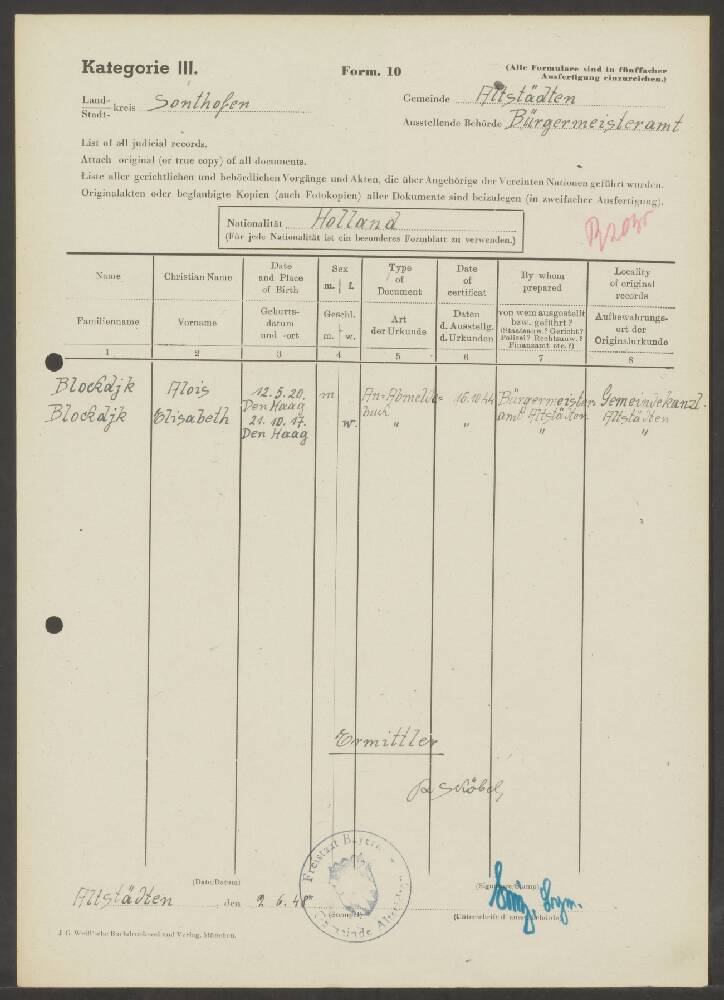 Kategorie III.
Form. 10
(Alle Formulare sind in fünffacher
Ausfertigung einzureichen.)
Land-
Stadt- kreis Sonthofen
Gemeinde Altstädten
Ausstellende Behörde Bürgermeisteramt
List of all judicial records.
Attach original (or true copy) of all documents.
Liste aller gerichtlichen und behördlichen Vorgänge und Akten, die über Angehörige der Vereinten Nationen geführt wurden.
Originalakten oder beglaubigte Kopien (auch Fotokopien) aller Dokumente sind beizulegen (in zweifacher Ausfertigung).
Nationalität Holland
(Für jede Nationalität ist ein besonderes Formblatt zu verwenden.)
Name | Christian Name | Date and Place of Birth | Sex m. f. | Type of Document | Date of certificat | By whom prepared | Locality of original records
Familienname | Vorname | Geburtsdatum und -ort | Geschl. m. w. | Art der Urkunde | Daten d. Ausstellg. d. Urkunden | von wem ausgestellt bzw. geführt? (Staatsanw.? Gericht? Polizei? Rechtsanw.? Finanzamt etc.?) | Aufbewahrungsort der Originalurkunde
1 2 3 4 5 6 7 8
Blockdjk Alois 12.5.20. m An-Abmelde= 16.10.44 Bürgermeister Gemeindekanzl.
Den Haag buch amt Altstädten Altstädten
Blockdjk Elisabeth 21.10.17. w. " " " "
Den Haag
Ermittler
(Date/Datum)
Altstädten, den 2.6.48
Freistaat Bayern
Gemeinde
(Stempel)
(Signature/Stamp)
(Unterschrift d. ausst. Behörde)
J. G. Weiß'sche Buchdruckerei und Verlag, München.